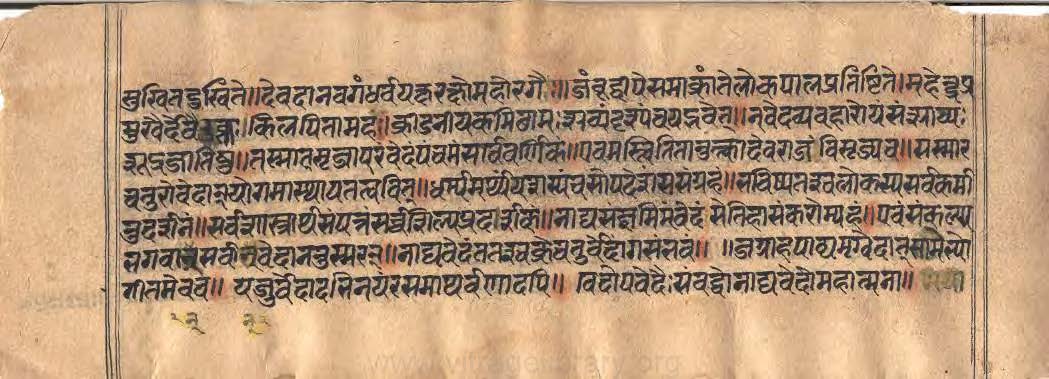 सुखितदुःखिते॥देवदानवगंधर्वयक्षरक्षोमहोरगैः॥जंबुद्वीपेसमाक्रांतेलोकपालप्रतिष्टिते।महेन्द्रप्र
मुखैर्देवैरुक्तः।किलपितामहः॥क्रीडनीयकमिछामःदृश्यंदृश्रंचयद्भवेत्॥नवेदव्यवहारोयंसंश्राव्यः
शूद्रजातिषु॥तस्मात्सृजापरंवेदंपंचमंसार्ववर्णिकं॥एवमस्त्वितितानुत्क्कादेवराजंविसृज्यच॥सस्मार
चतुरोवेदान्योगमास्थायतत्ववित्॥धर्म्यमर्थ्यंयशस्यंचसोपदेशंससंग्रहं॥भविष्यतश्चलोकस्यसर्वकर्मा
नुदर्शनं॥सर्वशास्त्रार्थसंपन्नंसर्वशिल्पप्रदर्शकं॥नाद्यसंज्ञमिमंवेदंसेतिहासंकरोम्यहं॥एवंसंकल्प्य
भगवान्सर्वान्वेदाननुस्मरन्॥नाद्यवेदंततश्चक्रेचतुर्वेदांगसंभवं॥ ॥जग्राहपाद्यमृग्वेदात्सामेभ्यो
गीतमेवच॥ यजुर्वेदादभिनयंरसमाथर्वणादपि॥ वेदोपवेदैःसंबद्धोनाद्यवेदोमहात्मना॥